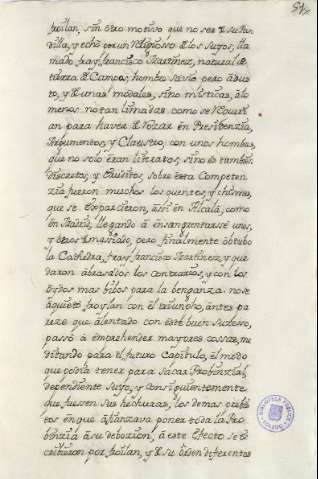 froilan, sin otro motivo que no ser de su Par-
dilla, y echo por un Religioso de los suyos, lla
mado fray francisco Martinez, natural de
tierra de Campos, hombre sabio pero adus
to, y de unas modales, sino rusticas, a lo
menos no tan limadas como se requeri
an para haver de rozar en Presidenzia,
Argumentos, y Claustro, con unos hombres,
que no solo eran literatos, sino es tambien
discretos, y eruditos, sobre esta Competen
zia fueron muchos los quentos, y chismes,
que se esparcieron, assi en Alcalá, como
en Madrid, llegando á ensangrentarse unos,
y otros demasiado, pero finalmente obtubo
la Cathedra, fray francisco Martinez, y que
daron abrasados los contrarios, y con los
mas filos para la benganza. no se
aquietó froylan con el triumpho, antes pa
reze que alentado con este buen subceso,
passó á emprehender mayores cosas, me
ditando para el futuro Capitulo, el modo
que podria tener para sacar Probinzial
dependiente suyo, y consiguientemente
que fuessen sus hechuras, los demas prela
tos en que afianzava poner toda la Pro
binzia á su debozion, á este efecto se
por froilan, y de su orden diferentes
BIBLIOTECA PUBLICA